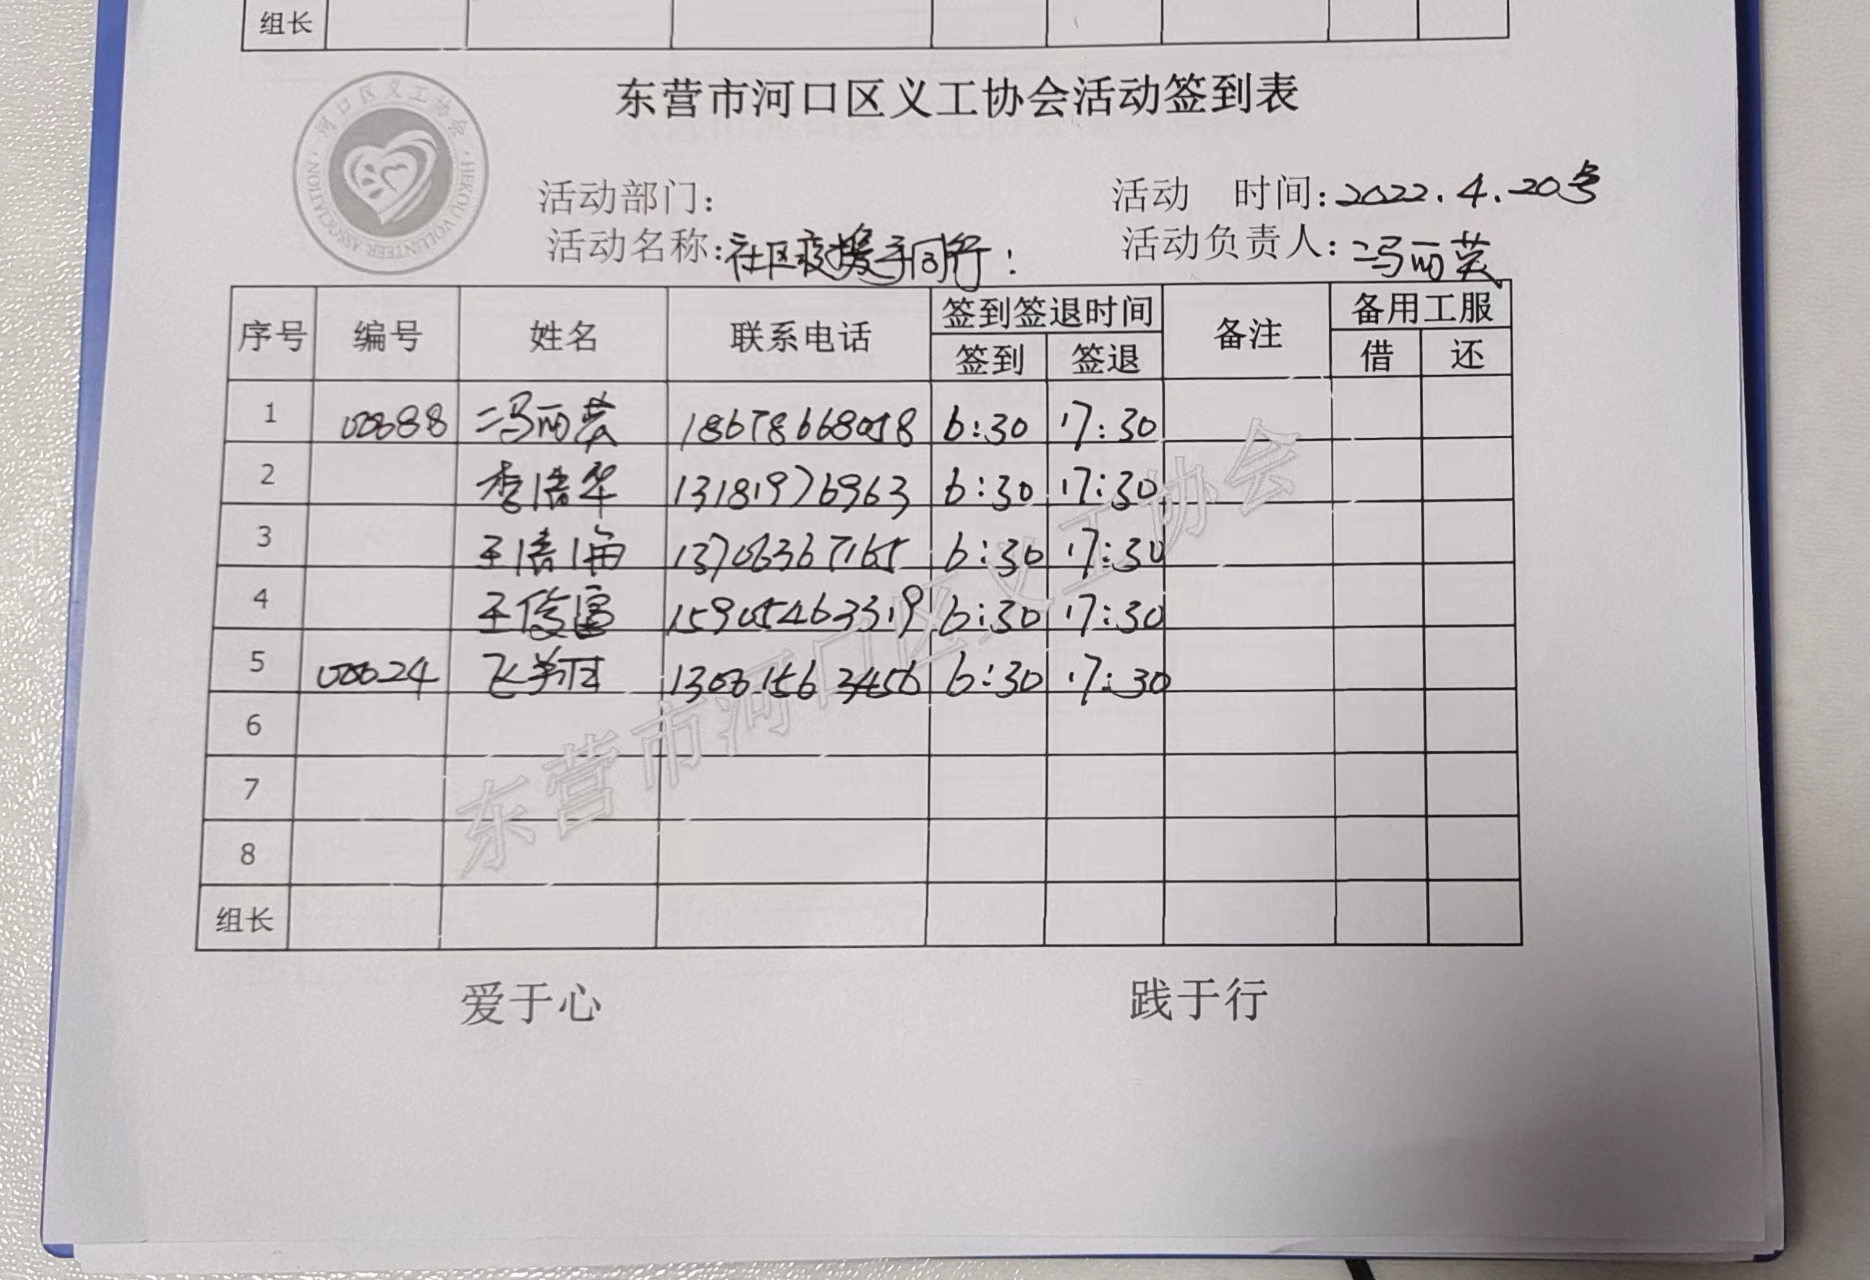 组长
东营市河口区义工协会活动签到表
河口区义工协会
HEKOU VOLUNTEER ASSOCIATION
活动部门:
活动 时间:2022.4.20号
活动名称:社区援手同行!
活动负责人:冯丽英
序号 编号 姓名 联系电话 签到签退时间 备注 备用工服
签到 签退 借 还
1 00688 冯丽英 18678668058 6:30 17:30
2 李浩华 13181976963 6:30 17:30
3 王清海 13706367165 6:30 17:30
4 王俊富 15905463319 6:30 17:30
5 00024 13061563456 6:30 17:30
6
7
8
组长
东营市河口区义工协会
爱于心 践于行